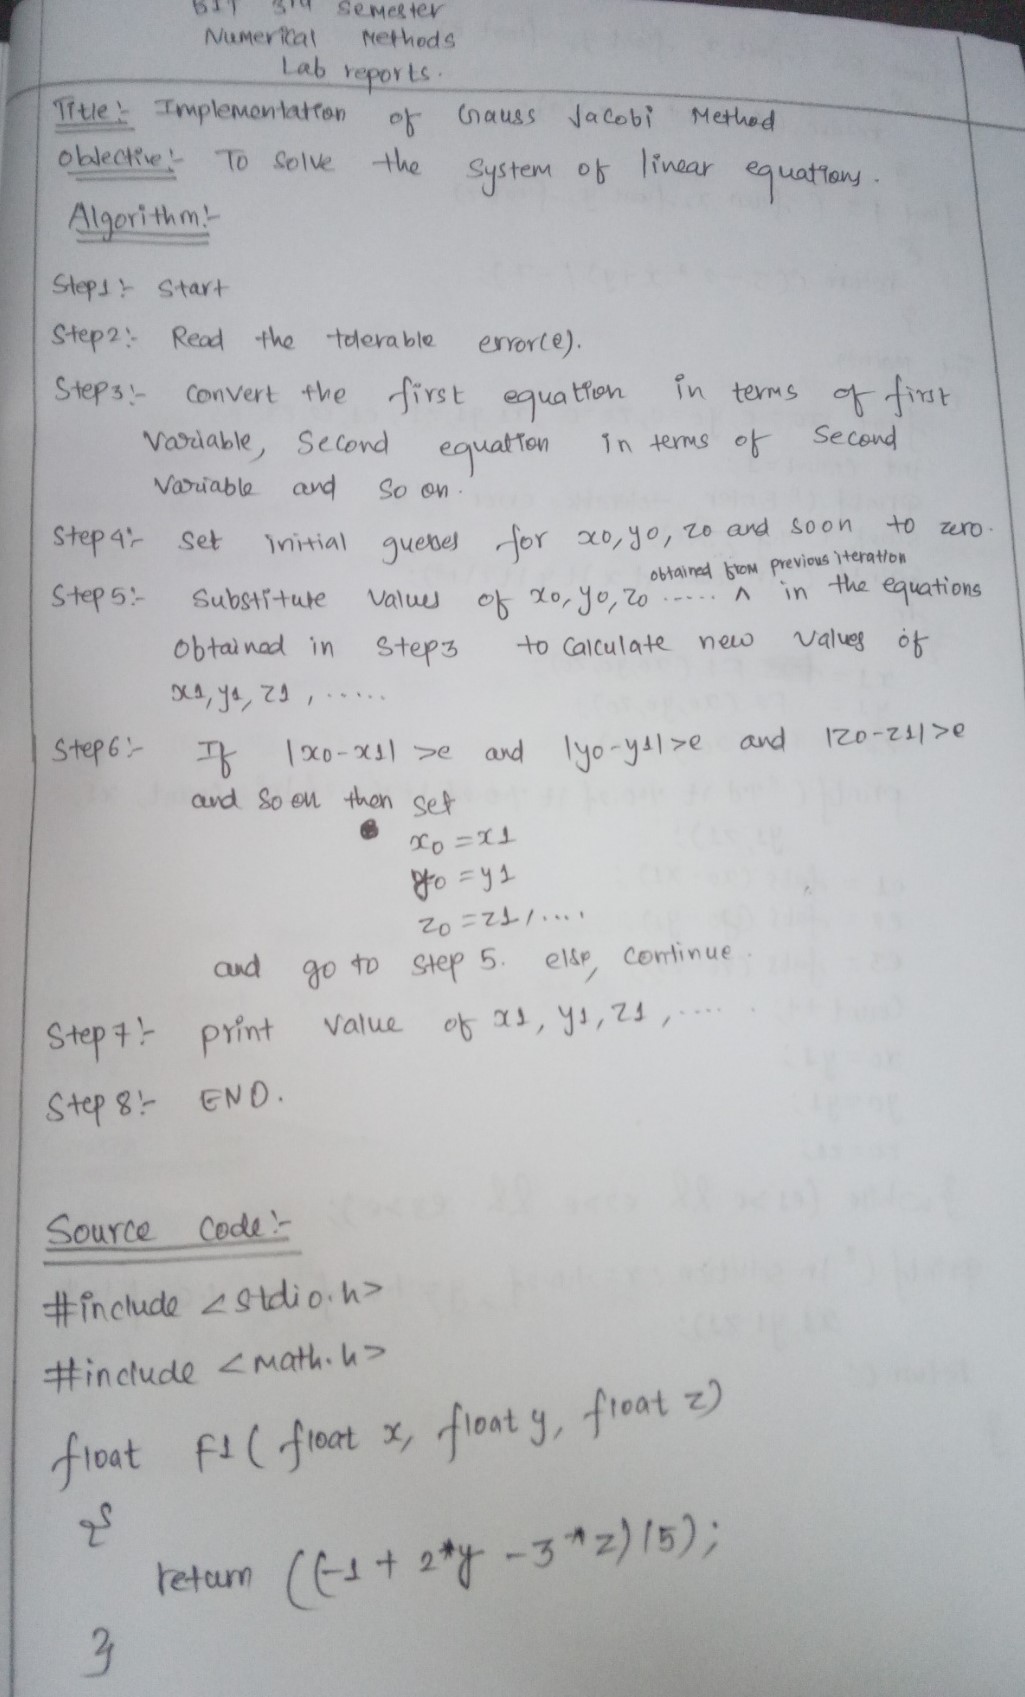 BIT 3rd Semester
Numerical Methods
Lab reports.
Title:- Implementation of Gauss Jacobi Method
Objective:- To solve the system of linear equations.
Algorithm:-
Step1:- Start
Step2:- Read the tolerable error(e).
Step3:- Convert the first equation in terms of first
variable, second equation in terms of second
variable and so on.
Step4:- Set initial gueses for x0, y0, z0 and soon to zero.
obtained from previous iteration
Step5:- Substitute values of x0, y0, z0 ...... ^ in the equations
obtained in step3 to calculate new values of
x1, y1, z1, ......
Step6:- If |x0-x1| >e and |y0-y1|>e and |z0-z1|>e
and so on then set
x0 = x1
y0 = y1
z0 = z1, ....
and go to step 5. else, continue.
Step7:- print value of x1, y1, z1, .....
Step 8:- END.
Source Code:-
#include <stdio.h>
#include <math.h>
float F1( float x, float y, float z)
{
return ((-1 + 2*y - 3*z)/5);
}